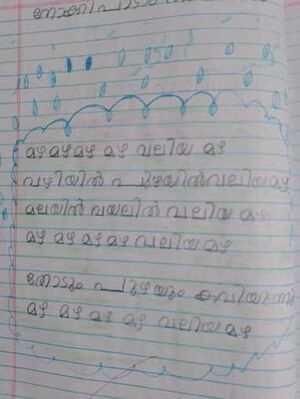 നോക്കി പാടാം
മഴ മഴ മഴ മഴ വലിയ മഴ
വഴിയിൽ പുഴയിൽ വലിയ മഴ
മലയിൽ വയലിൽ വലിയ മഴ
മഴ മഴ മഴ മഴ വലിയ മഴ
തോടും പുഴയും കവിയുന്നു
മഴ മഴ മഴ മഴ വലിയ മഴ